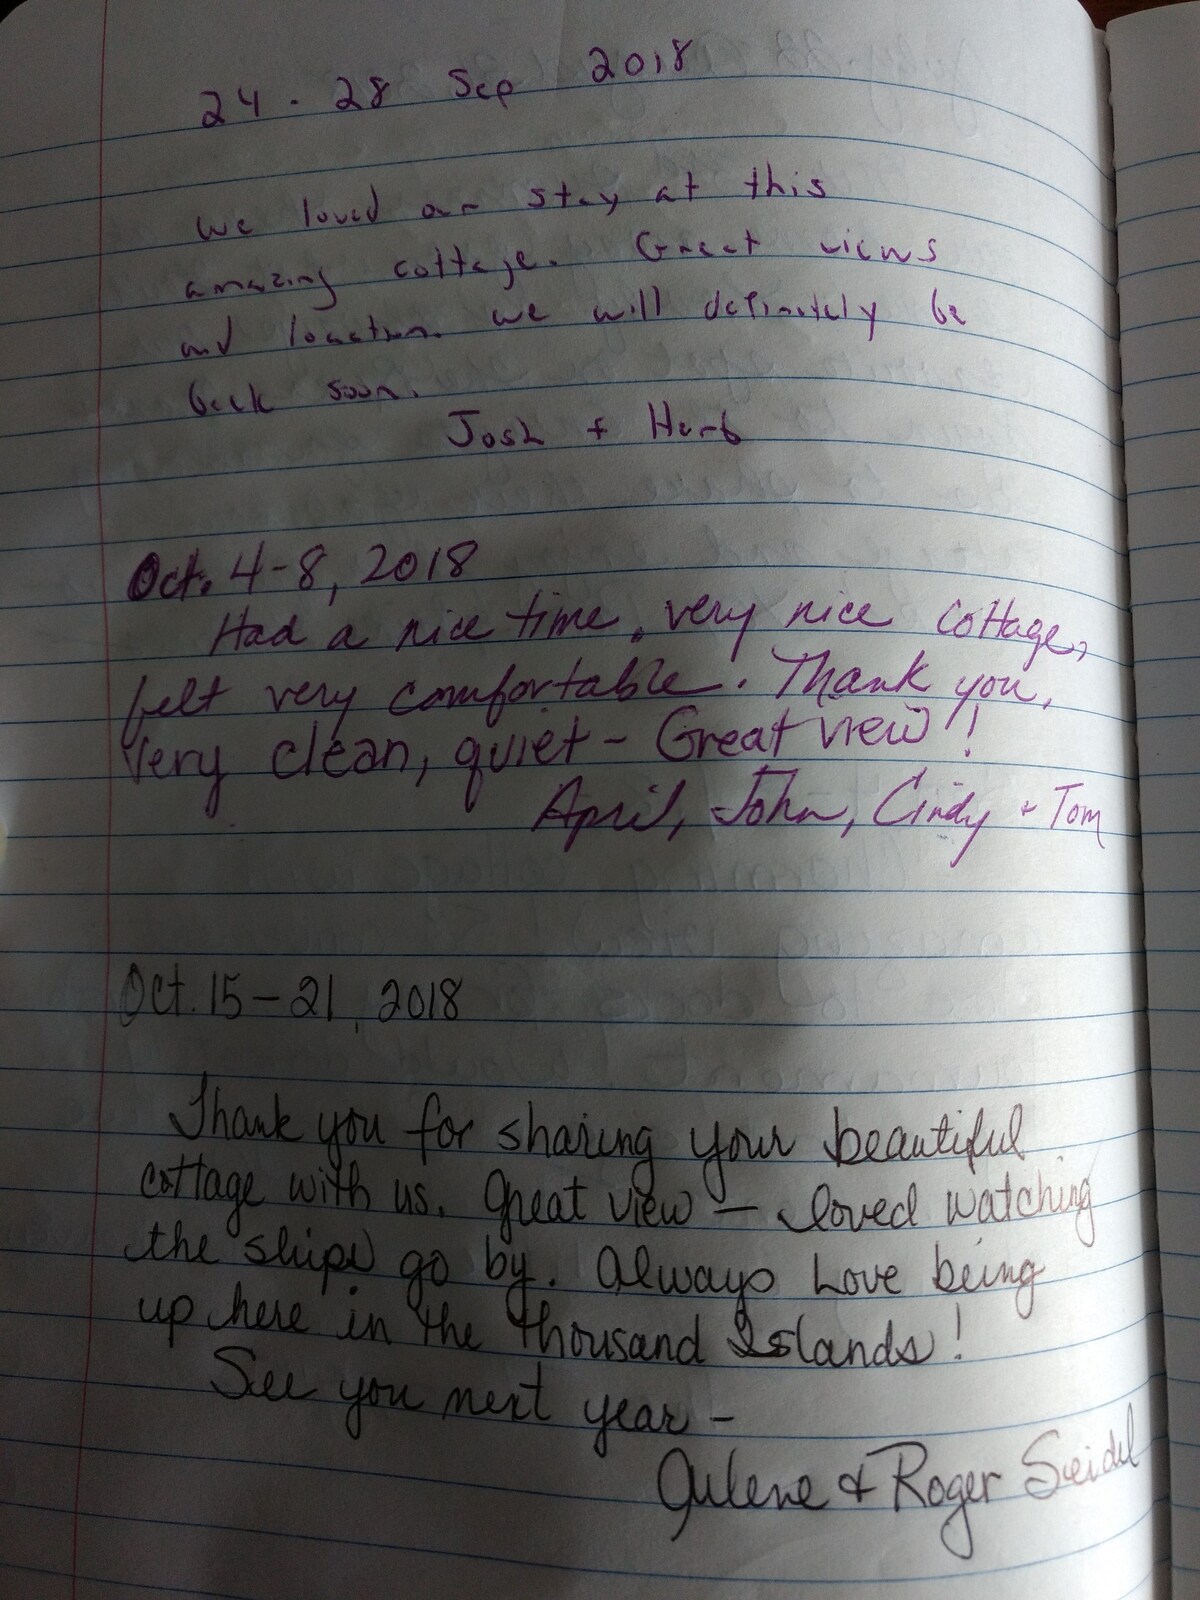 24 - 28 Sep 2018
we loved our stay at this
amazing cottage. Great views
and location. we will definitely be
back soon.
Josh + Herb
Oct. 4-8, 2018
Had a nice time, very nice cottage,
felt very comfortable. Thank you,
Very clean, quiet - Great view!
April, John, Cindy + Tom
Oct. 15-21, 2018
Thank you for sharing your beautiful
cottage with us. Great view — loved watching
the ships go by. Always Love being
up here in the Thousand Islands!
See you next year -
& Roger Seidel